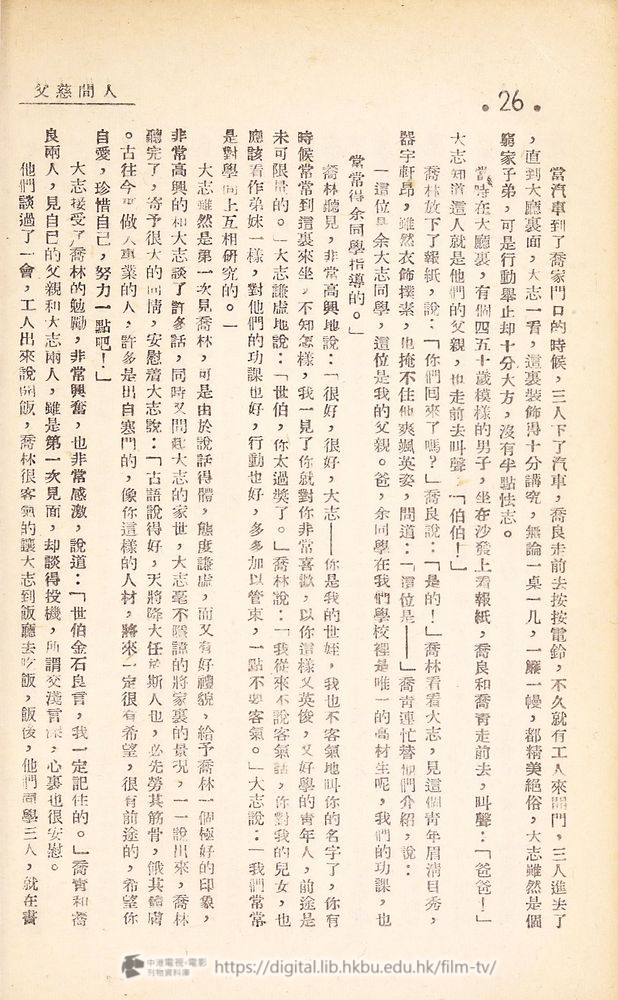 人間慈父
•26•
當汽車到了喬家門口的時候，三人下了汽車，喬良走前去按按電鈴，不久就有工人來開門，三人進去了
，直到大廳裏面，大志一看，這裏裝飾得十分講究，無論一桌一几，一簾一幔，都精美絕俗，大志雖然是個
窮家子弟，可是行動舉止却十分大方，沒有半點怯志。
當時在大廳裏，有個四五十歲模樣的男子，坐在沙發上看報紙，喬良和喬靑走前去，叫聲：「爸爸！」
大志知道這人就是他們的父親，也走前去叫聲：「伯伯！」
喬林放下了報紙，說：「你們回來了嗎？」喬良說：「是的！」喬林看看大志，見這個靑年眉淸目秀，
器宇軒昂，雖然衣飾撲素，也掩不住他爽颯英姿，問道：「這位是——」喬靑連忙替他們介紹，說：
「這位是余大志同學，這位是我的父親。爸，余同學在我們學校裡是唯一的高材生呢，我們的功課，也
常常得余同學指導的。」
喬林聽見，非常高興地說：「很好，很好，大志——你是我的世姪，我也不客氣地叫你的名字了，你有
時候常常到這裏來坐，不知怎樣，我一見了你就對你非常喜歡，以你這樣又英俊，又好學的靑年人，前途是
未可限量的。」大志謙虛地說：「世伯，你太過獎了。」喬林說：「我從來不說客氣話，你對我的兒女，也
應該看作弟妹一樣，對他們的功課也好，行動也好，多多加以管束，一點不要客氣。」大志說：「我們常常
是對學問上互相研究的。」
大志雖然是第一次見喬林，可是由於說話得體，態度謙虛，而又有好禮貌，給予喬林一個極好的印象，
非常高興的和大志談了許多話，同時又問起大志的家世，大志毫不隱諱的將家裏的景況，一一說出來，喬林
聽完了，寄予很大的同情，安慰着大志說：「古語說得好，天將降大任於斯人也，必先勞其筋骨，餓其體膚
。古往今來做大事業的人，許多是出自寒門的，像你這樣的人材，將來一定很有希望，很有前途的，希望你
自愛，珍惜自己，努力一點吧！」
大志接受了喬林的勉勵，非常興奮，也非常感激，說道：「世伯金石良言，我一定記住的。」喬靑和喬
良兩人，見自己的父親和大志兩人，雖是第一次見面，却談得投機，所謂交淺言深，心裏也很安慰。
他們談過了一會，工人出來說開飯，喬林很客氣的讓大志到飯廳去吃飯，飯後，他們同學三人，就在書
中港電視·電影
刊物資料庫
https://digital.lib.hkbu.edu.hk/film-tv/